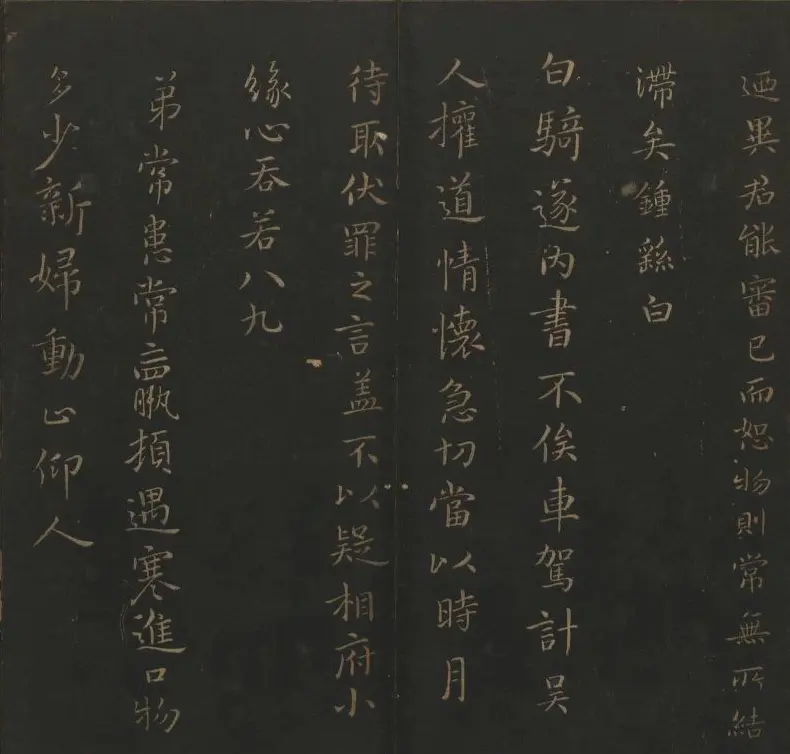 迺異君能審己而恕物則常無所結
滯矣鍾繇白
白騎遂內書不俟車駕計吴
人權道情懷急切當以時月
待取伏罪之言盖不以疑相府小
緣心吞若八九
弟常患常羸頓遇寒進口物
多少新婦動止仰人